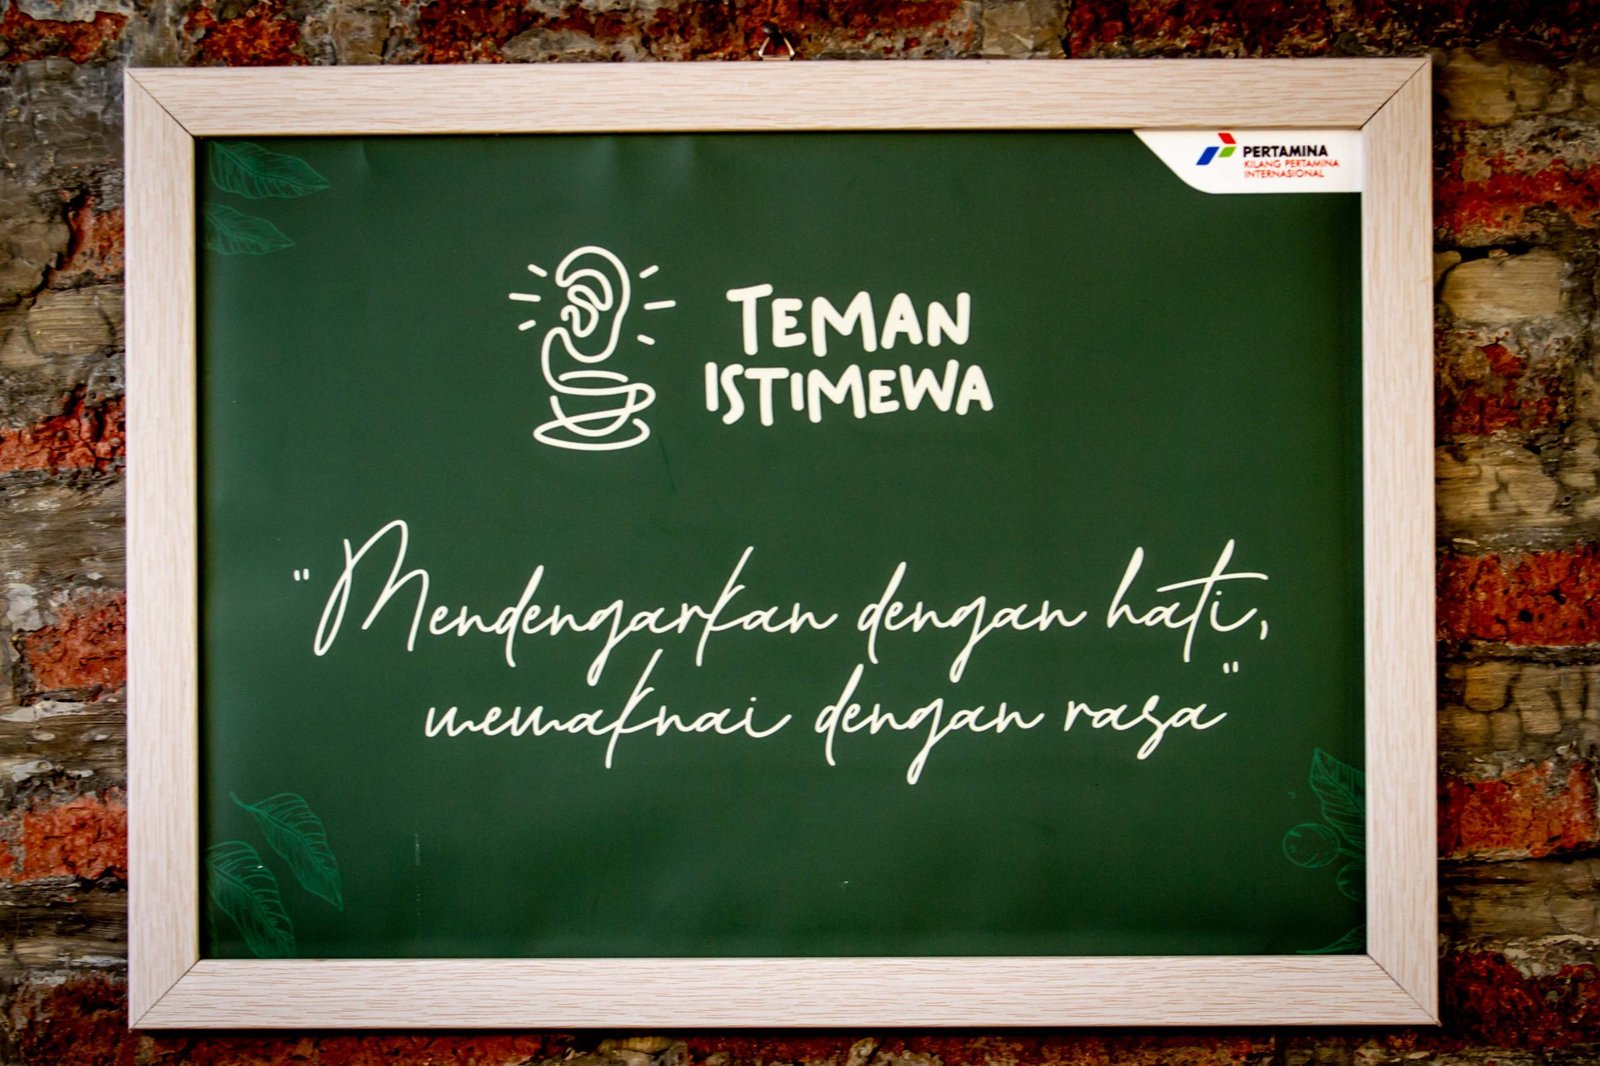 PERTAMINA
KILANG PERTAMINA
INTERNASIONAL
TEMAN
ISTIMEWA
"Mendengarkan dengan hati,
memaknai dengan rasa"